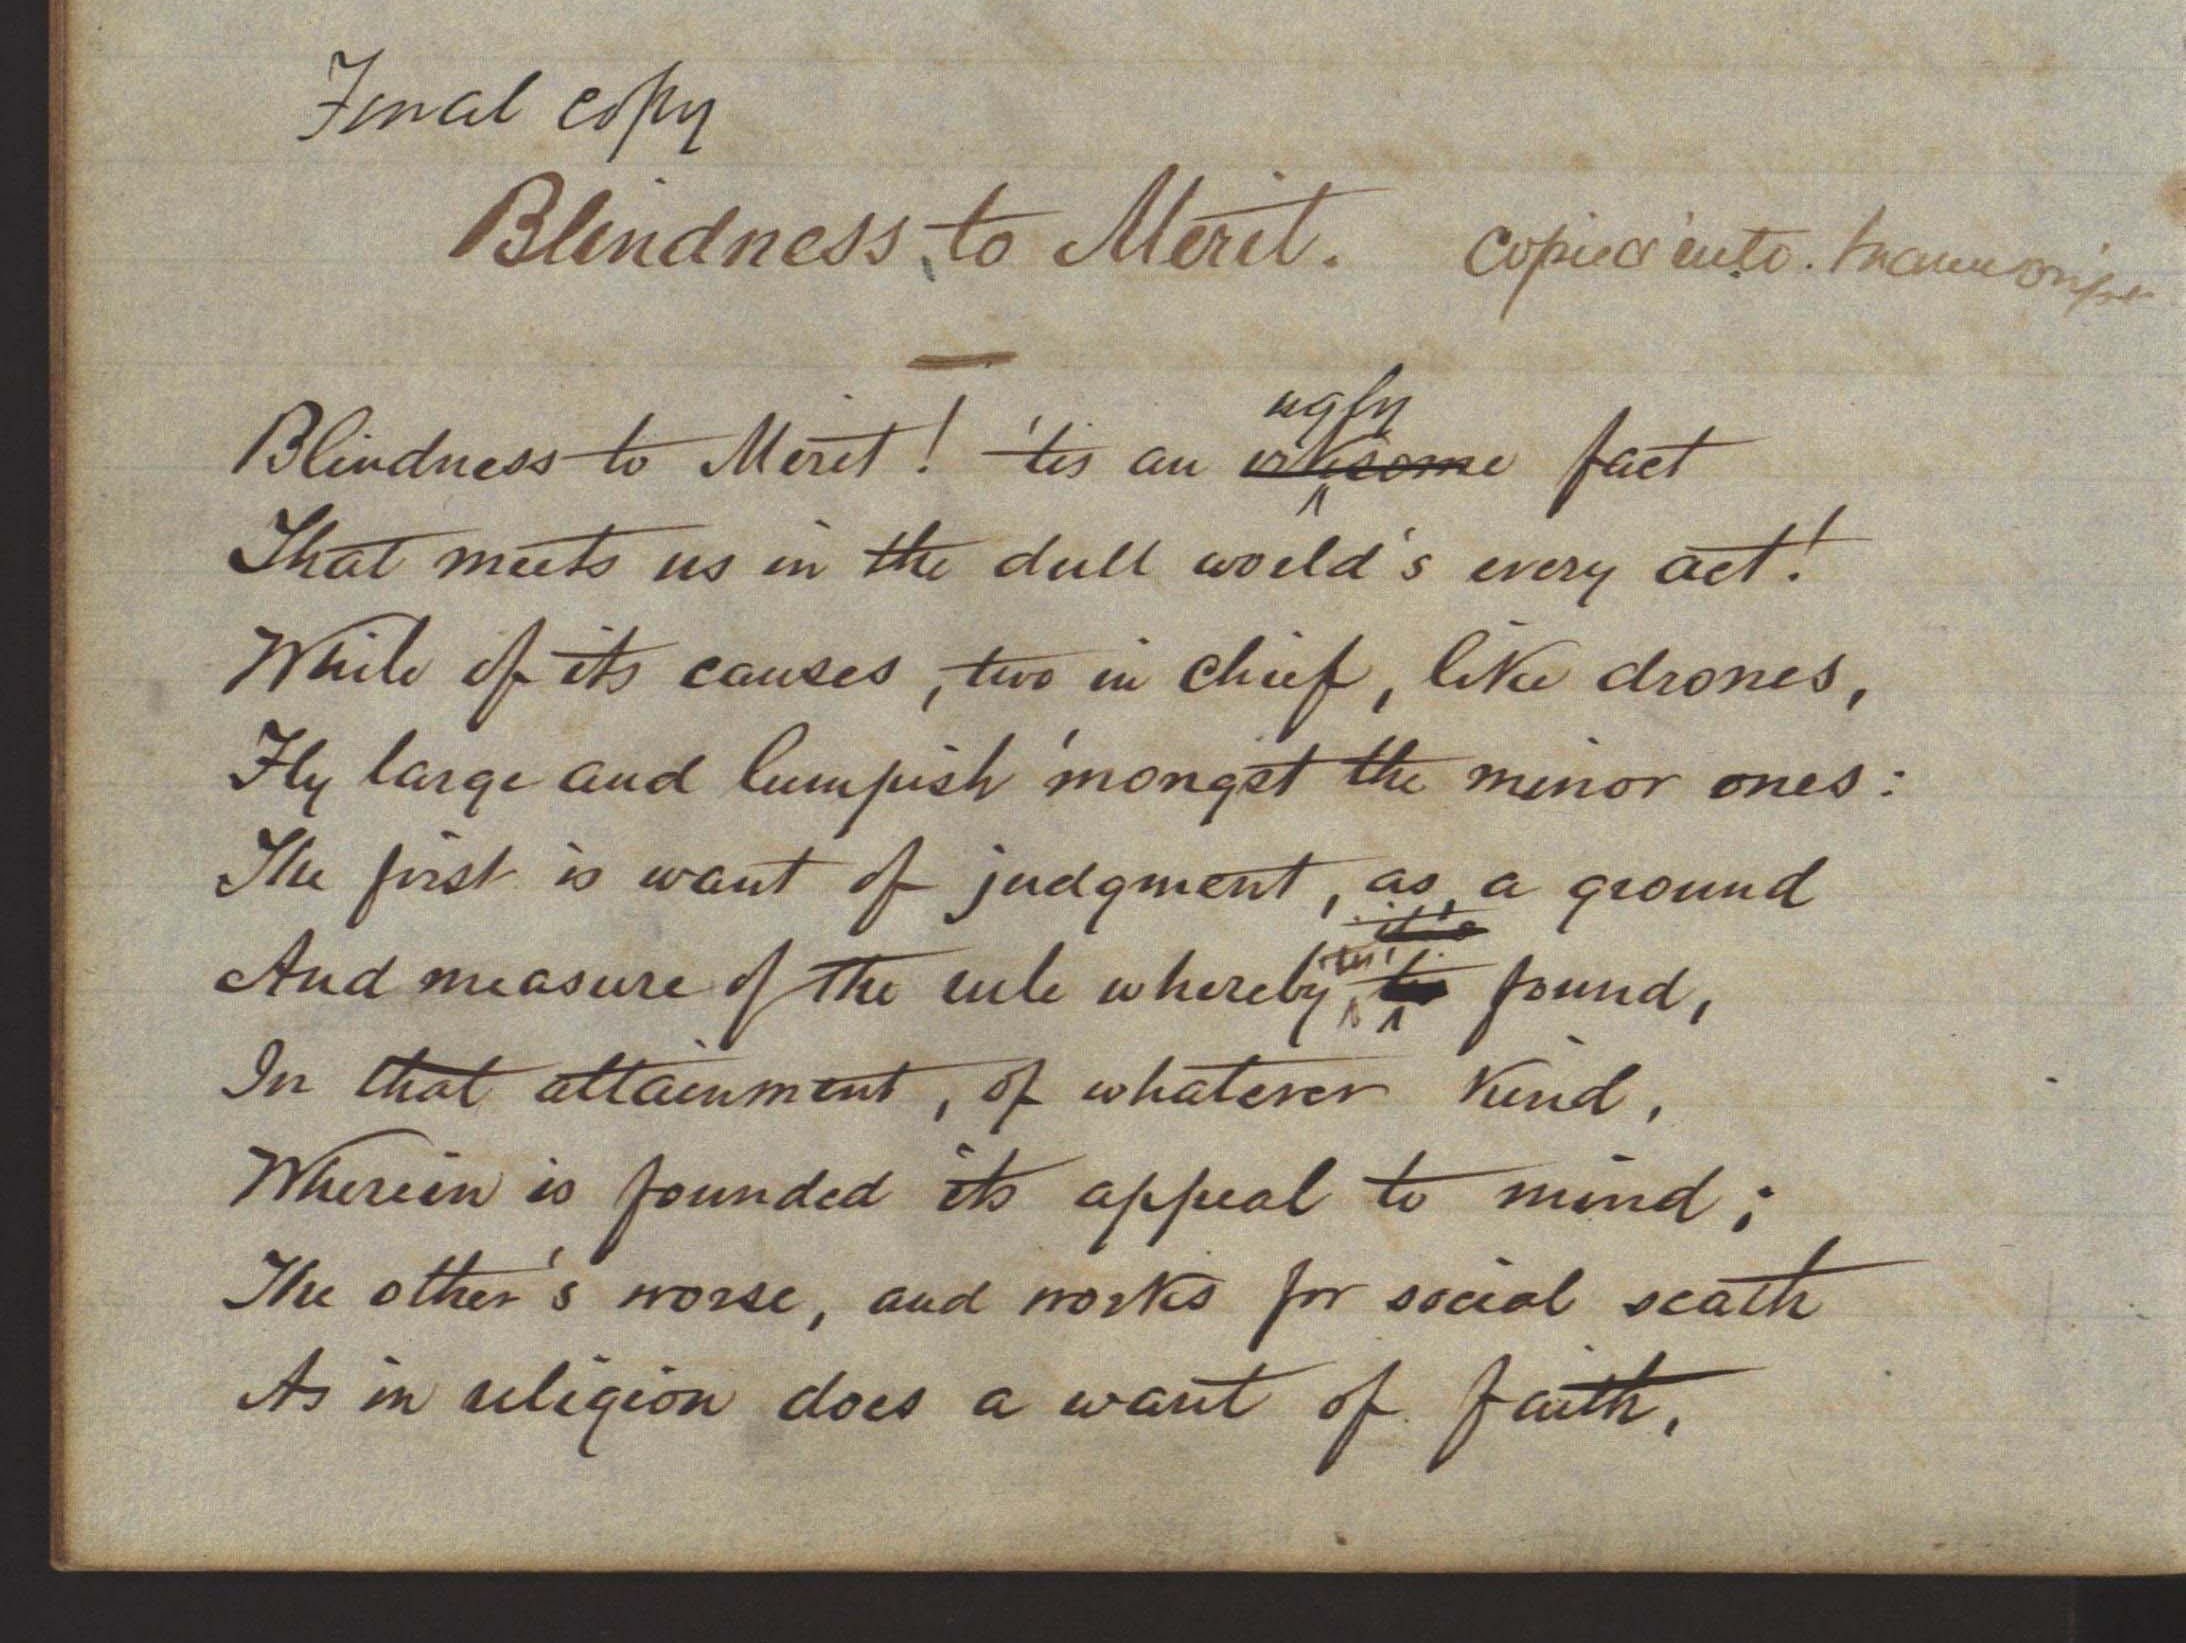 Final copy
Blindness to Merit. Copied into. manuscript
Blindness to Merit! 'tis an ugly irksome fact
That meets us in the dull world's every act!
While of its causes, two in chief, like drones,
Fly large and lumpish 'mongst the minor ones:
The first is want of judgment, as a ground
And measure of the rule whereby found,
In that attainment, of whatever kind,
Wherein is founded its appeal to mind;
The other's worse, and works for social scath
As in religion does a want of faith,